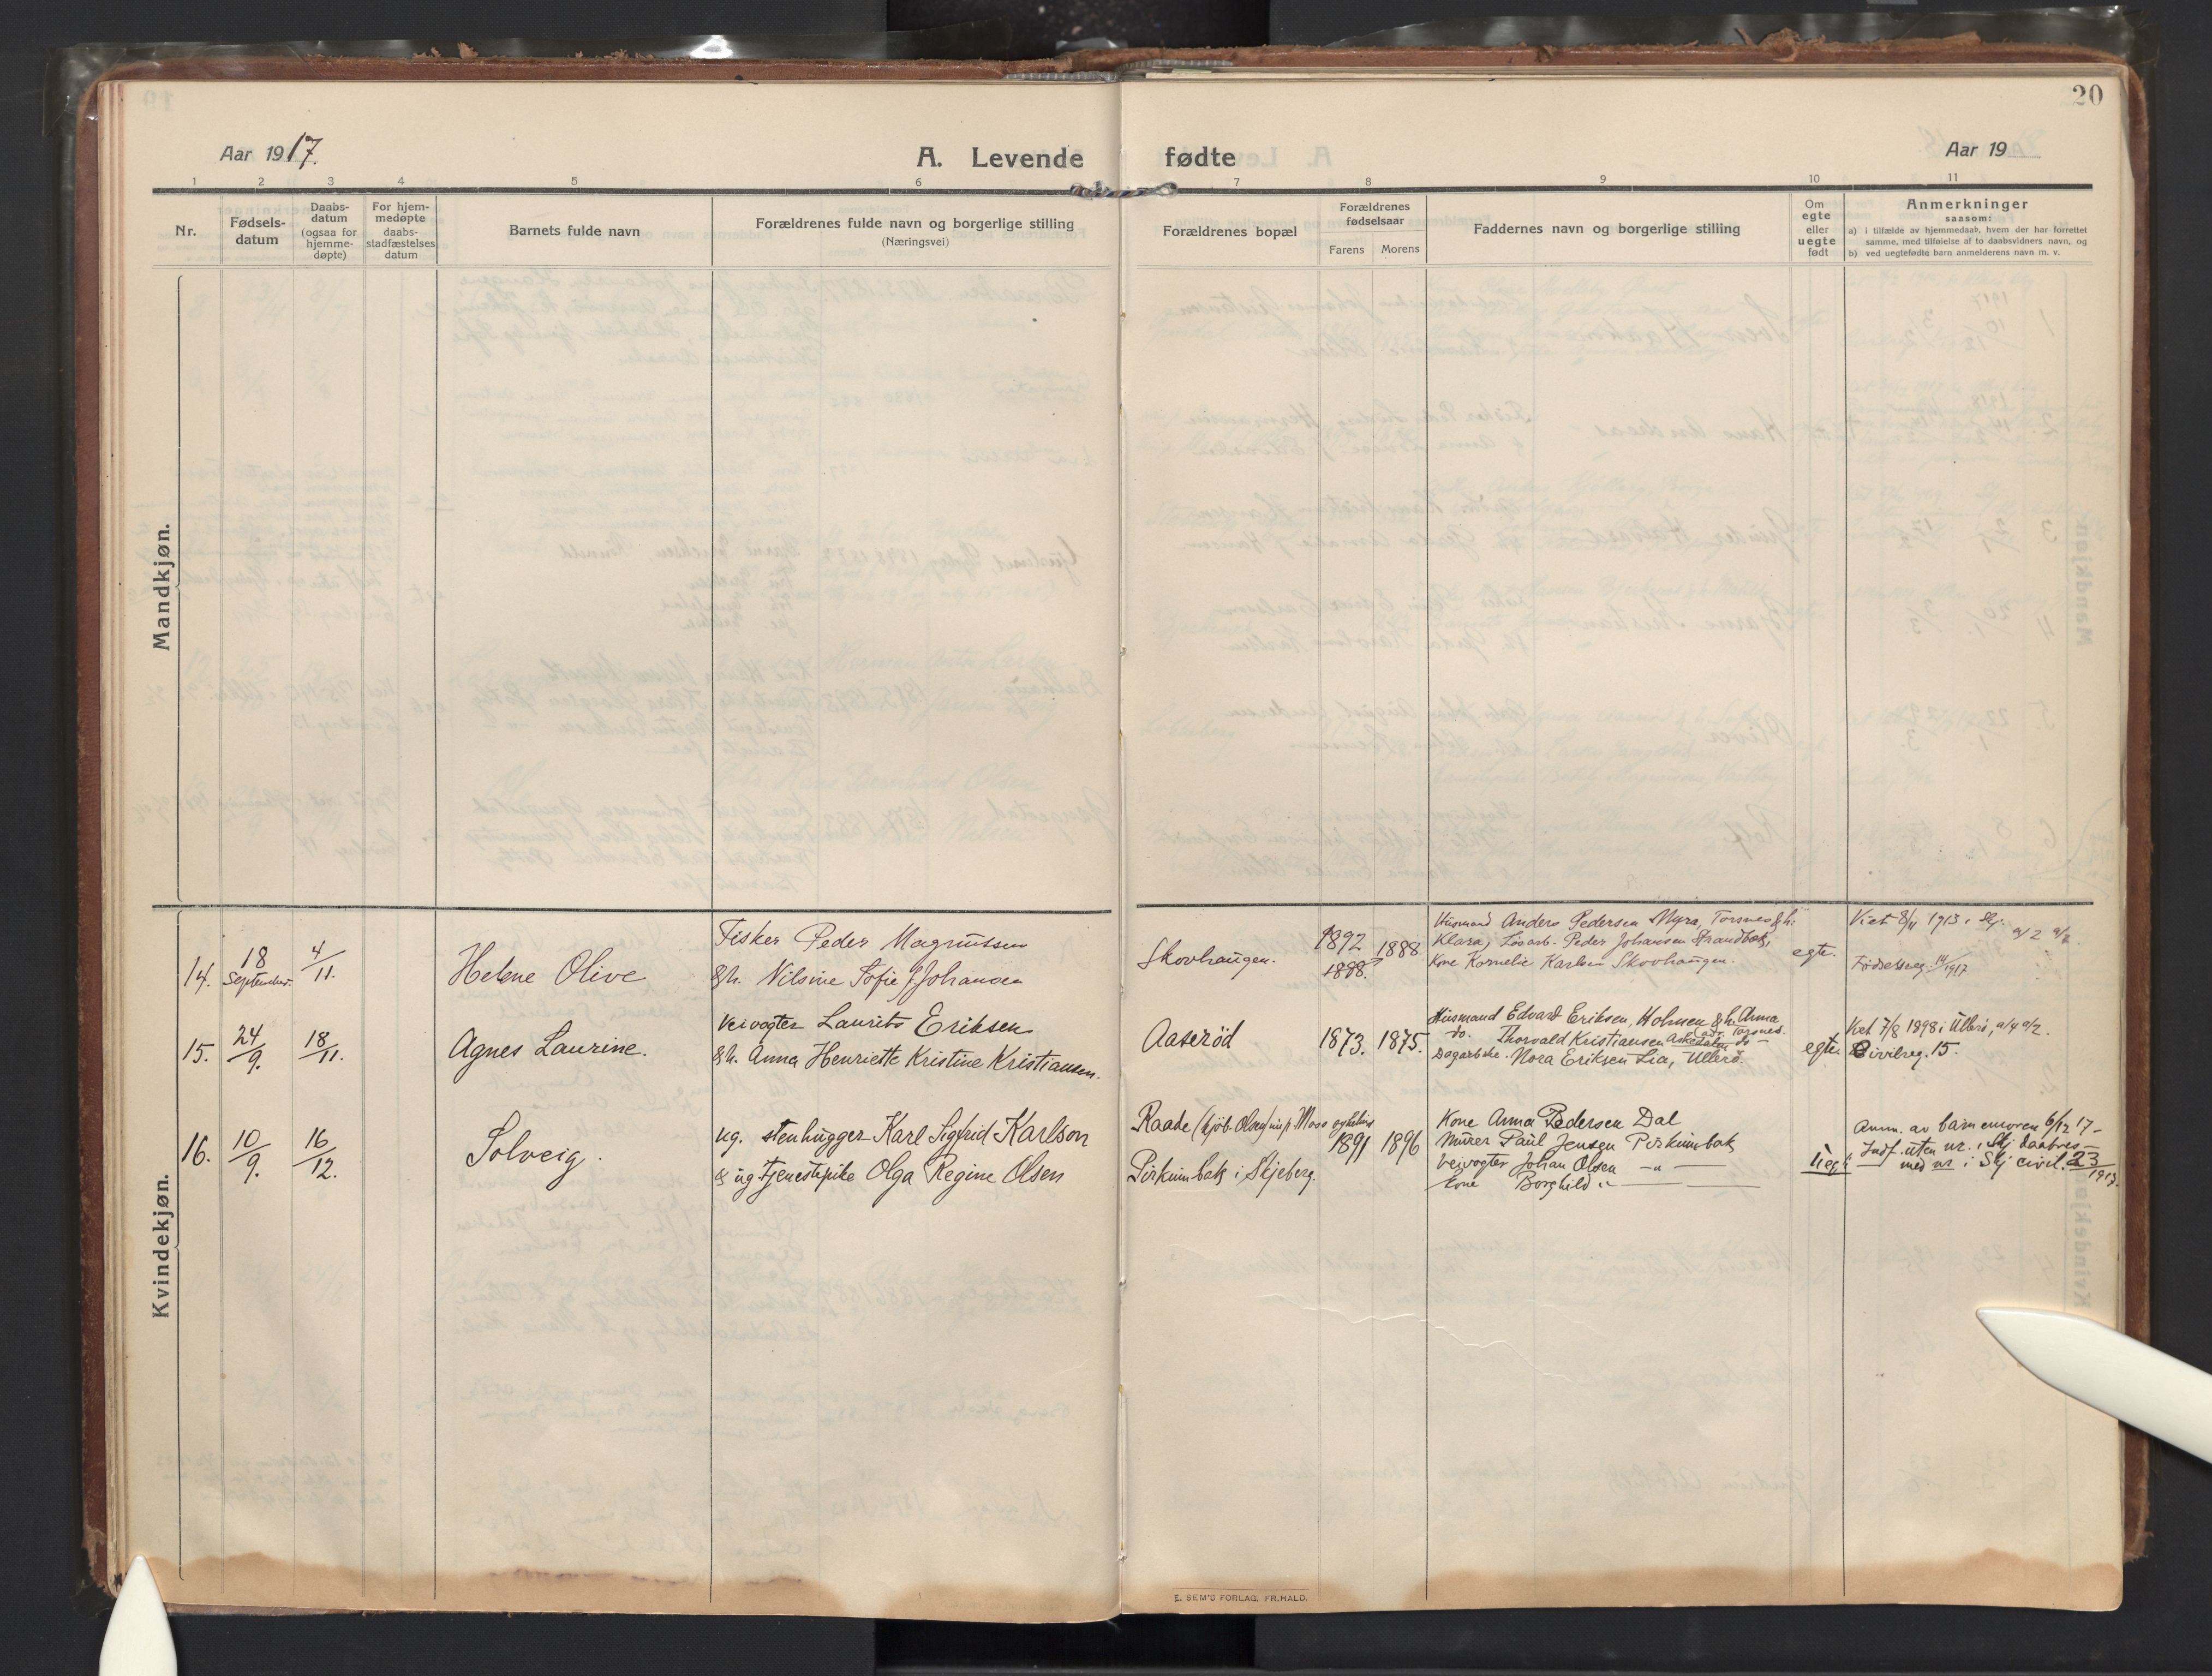 20
Aar 1917.
A. Levende fødte
Aar 19
1 2 3 4 5 6 7 8 9 10 11
Nr.
Fødsels-
datum
Daabs-
datum
(ogsaa for
hjemme-
døpte)
For hjem-
medøpte
daabs-
stadfæstelses
datum
Barnets fulde navn
Forældrenes fulde navn og borgerlige stilling
(Næringsvei)
Forældrenes bopæl
Forældrenes
fødselsaar
Farens Morens
Faddernes navn og borgerlige stilling
Om
egte
eller
uegte
født
Anmerkninger
saasom:
a) i tilfælde av hjemmedaab, hvem der har forrettet
samme, med tilføielse af to daabsvidners navn, og
b) ved uegtefødte barn anmelderens navn m. v.
Mandkjøn.
Kvindekjøn.
14.
18
September.
4/11.
Helene Olive
Fisker Peder Magnussen
& h. Nilsine Sofie f. Johansen
Skovhaugen.
1892
1898.
1888
Husmand Anders Pedersen Myra, Torsnes & h.
Klara, Løsarb. Peder Johansen Strandbak,
Kone Kornelie Karlsen Skovhaugen.
egte.
Viet 8/11 1913 i Skj.
Fødselsreg. 14/1917
15.
24/9.
18/11.
Agnes Laurine.
Veivogter Laurits Eriksen
& h. Anna Henriette Kristine Kristiansen.
Aaserød
1873. 1875.
Husmand Edvard Eriksen, Holmen & h. Anna
do. Thorvald Kristiansen Askedalen, Torsnes.
Dagarb.ske. Nora Eriksen Lia, Ullerö.
egte
Viet 7/8 1898 i Ullerö,
Civilreg. 15.
16.
10/9.
16/12.
Solveig.
ug. stenhugger Karl Sigfrid Karlson
& ug tjenestepike Olga Regine Olsen
Raade
Pirkumbak i Skjeberg.
1891 1896
Kone Anna Pedersen Dal
Murer Paul Jensen Pirkumbak
Veivogter Johan Olsen —„—
Kone Borghild „ —
uegte
Anm. av barnemoren 6/12 17-
Indf. uten nr. i Skj daabsreg—
med nr i Skj civil. 23/1917.
E. SEM'S FORLAG, FR.HALD.